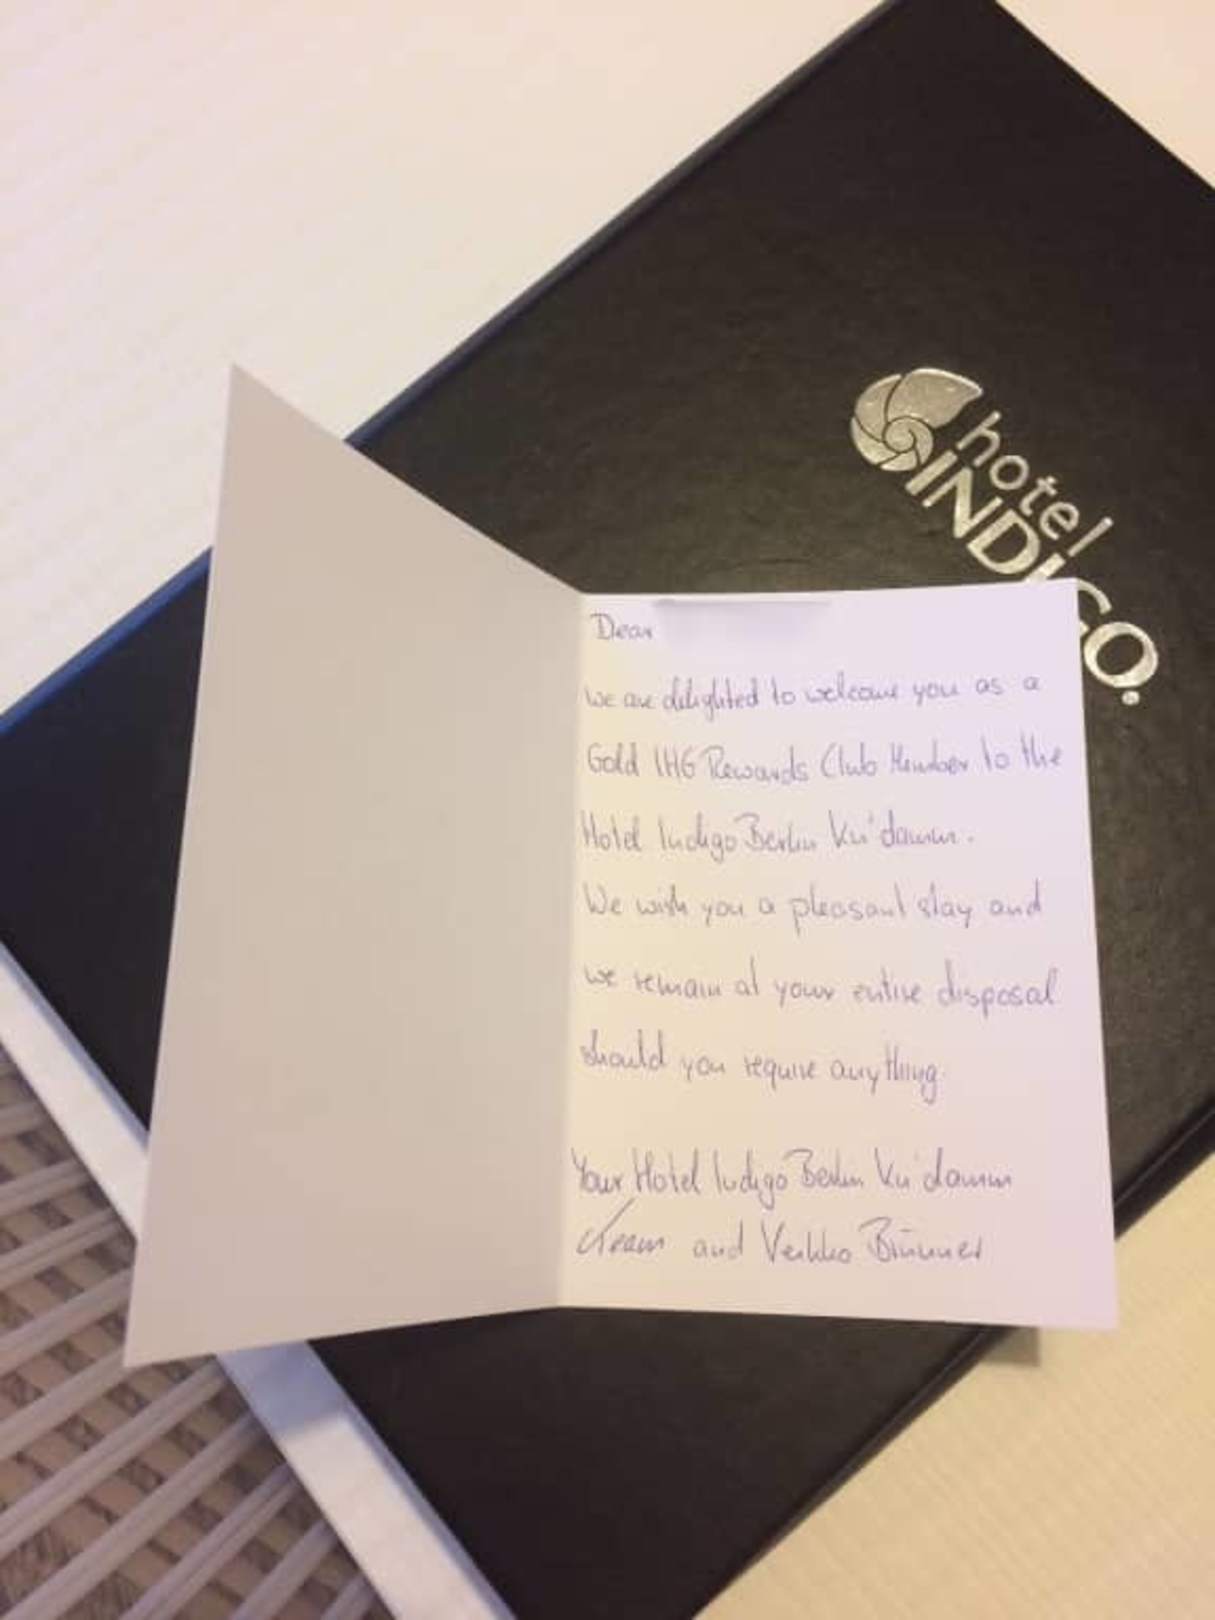 hotel
INDIGO
Dear
we are delighted to welcome you as a
Gold IHG Rewards Club Member to the
Hotel Indigo Berlin Ku'damm.
We wish you a pleasant stay and
we remain at your entire disposal
should you require anything.
Your Hotel Indigo Berlin Ku'damm
Team and Veikko Brünner